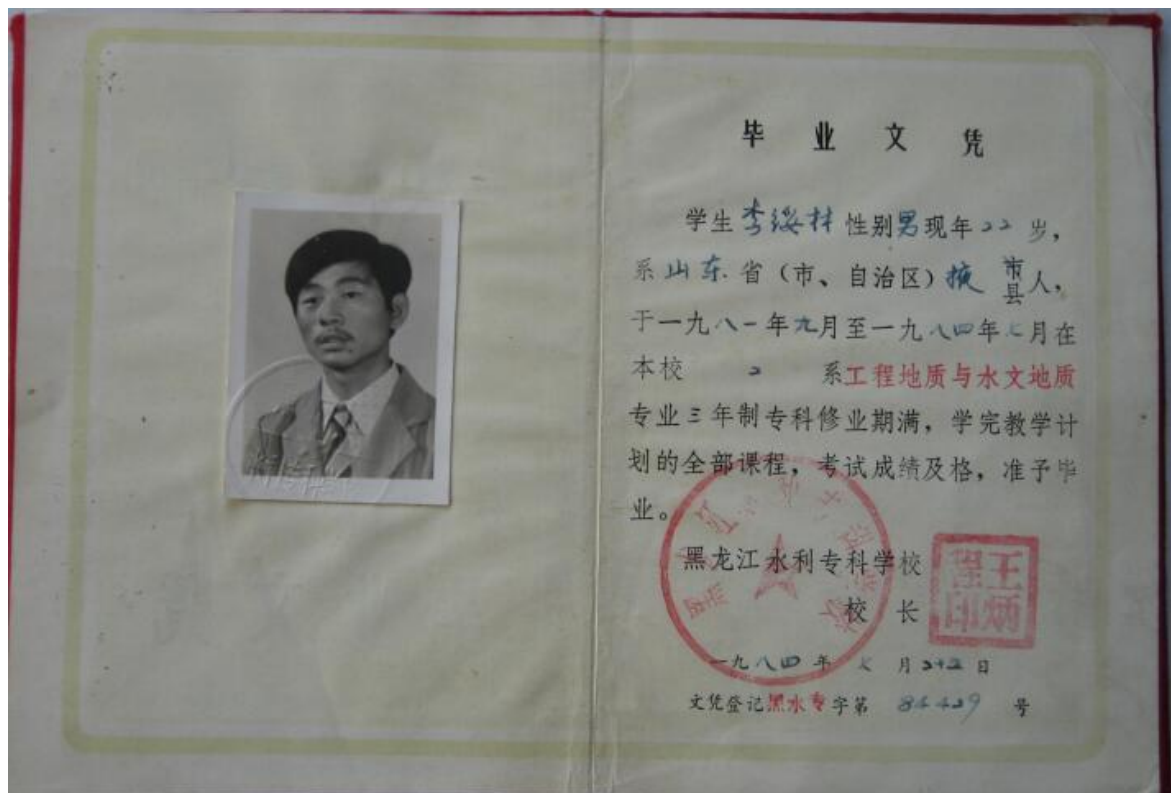 毕业文凭
学生李绥林 性别男现年22岁，
系山东省（市、自治区）掖市县人，
于一九八一年九月至一九八四年七月在
本校 2 系工程地质与水文地质
专业三年制专科修业期满，学完教学计
划的全部课程，考试成绩及格，准予毕
业。
黑龙江水利专科学校
校长
王炳印
一九八四年七月 日
文凭登记黑水专字第 84429 号